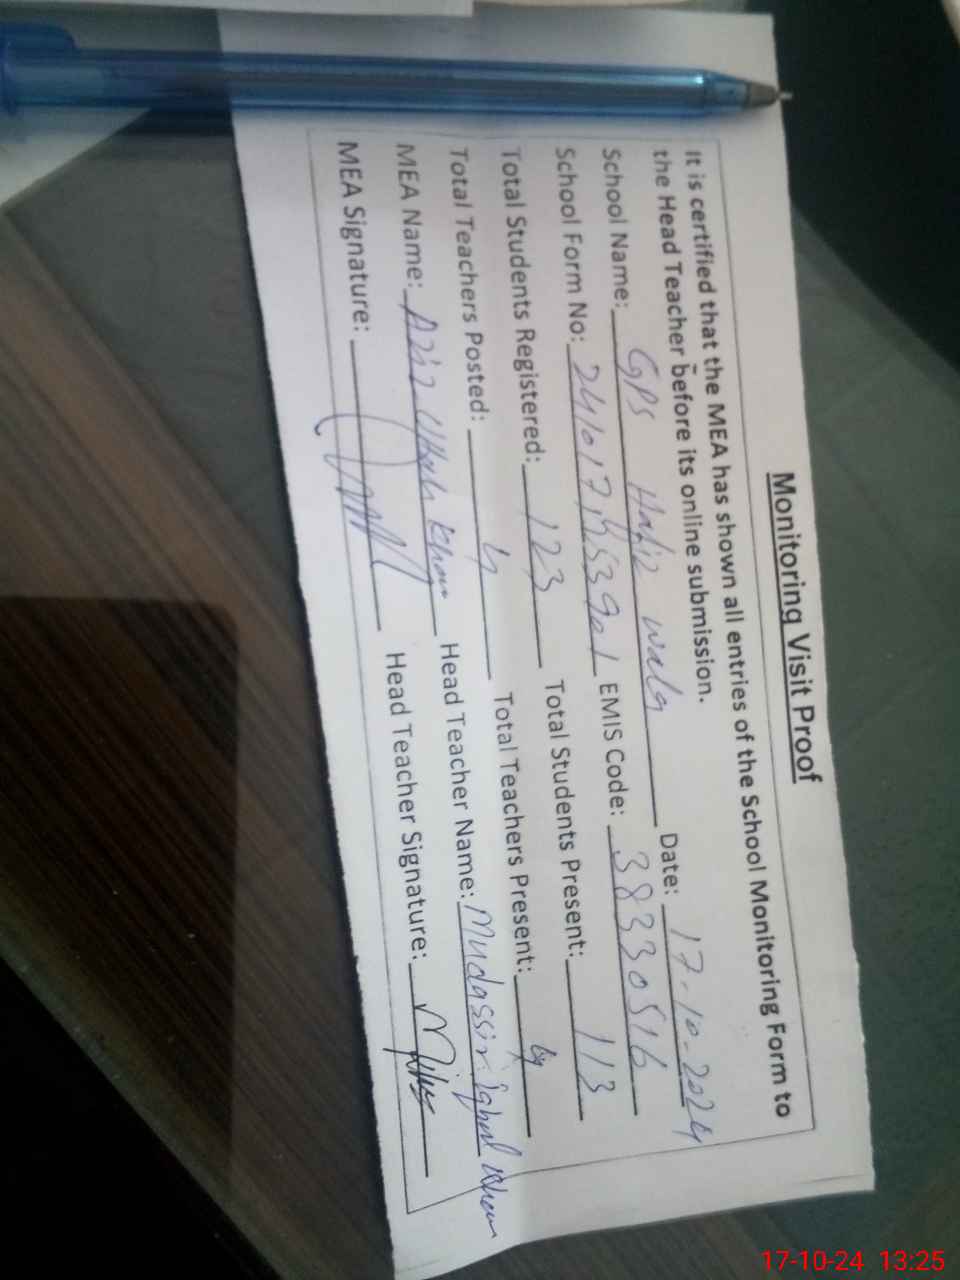 Monitoring Visit Proof
It is certified that the MEA has shown all entries of the School Monitoring Form to
the Head Teacher before its online submission.
School Name: GPS Hafiz wala Date: 17-10-2024
School Form No: EMIS Code: 38330516
Total Students Registered: 123 Total Students Present: 113
Total Teachers Posted: 4 Total Teachers Present: 4
MEA Name: Aziz Ullah Khan Head Teacher Name: Mudassir iqbal Khan
MEA Signature: Head Teacher Signature:
17-10-24 13:25